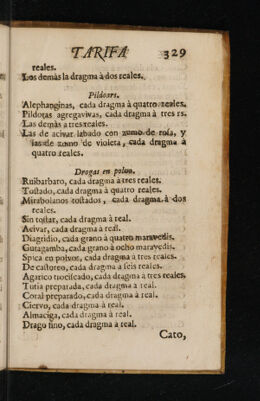 TARIFA 329
reales.
Los demàs la dragma à dos reales.
Pildoars.
Alephanginas, cada dragma à quatro reales.
Pildoras agregavivas, cada dragma à tres rs.
Las demàs a tres reales.
Las de acivar labado con zumo de rosa, y
las de zumo de violeta, cada dragma à
quatro reales.
Drogas en polvo.
Ruibarbaro, cada dragma à tres reales.
Tostado, cada dragma à quatro reales.
Mirabolanos tostados, cada dragma à dos
reales.
Sin tostar, cada dragma à real.
Acivar, cada dragma à real.
Diagridio, cada grano à quatro maravedis.
Gutagamba, cada grano à ocho maravedis.
Spica en polvos, cada dragma à tres reales.
De castoreo, cada dragma à seis reales.
Agarico trociscado, cada dragma à tres reales.
Tutia preparada, cada dragma à real.
Coral preparado, cada dragma à real.
Ciervo, cada dragma à real.
Almaciga, cada dragma à real.
Drago fino, cada dragma à real.
Cato,